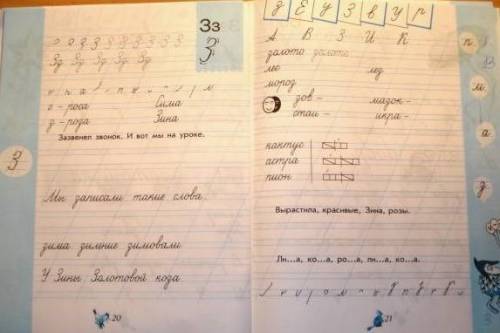 Зз
З
о о З З З З З З З
Зд Зд Зд Зд Зд
с - роса Сима
з - роза Зина
Зазвенел звонок. И вот мы на уроке.
З
Мы записали такие слова.
зима зимние зимовали
У Зины Золотовой коза
20
д Е У З в У р
А В З И К
золото золото
лес лед
мороз
зов - мазок -
стаи - икра -
кактус
астра
пион
Вырастила, красивые, Зина, розы.
Ли...а, ко...а, ро...а, пи...а, ко...а.
21
п
м
а